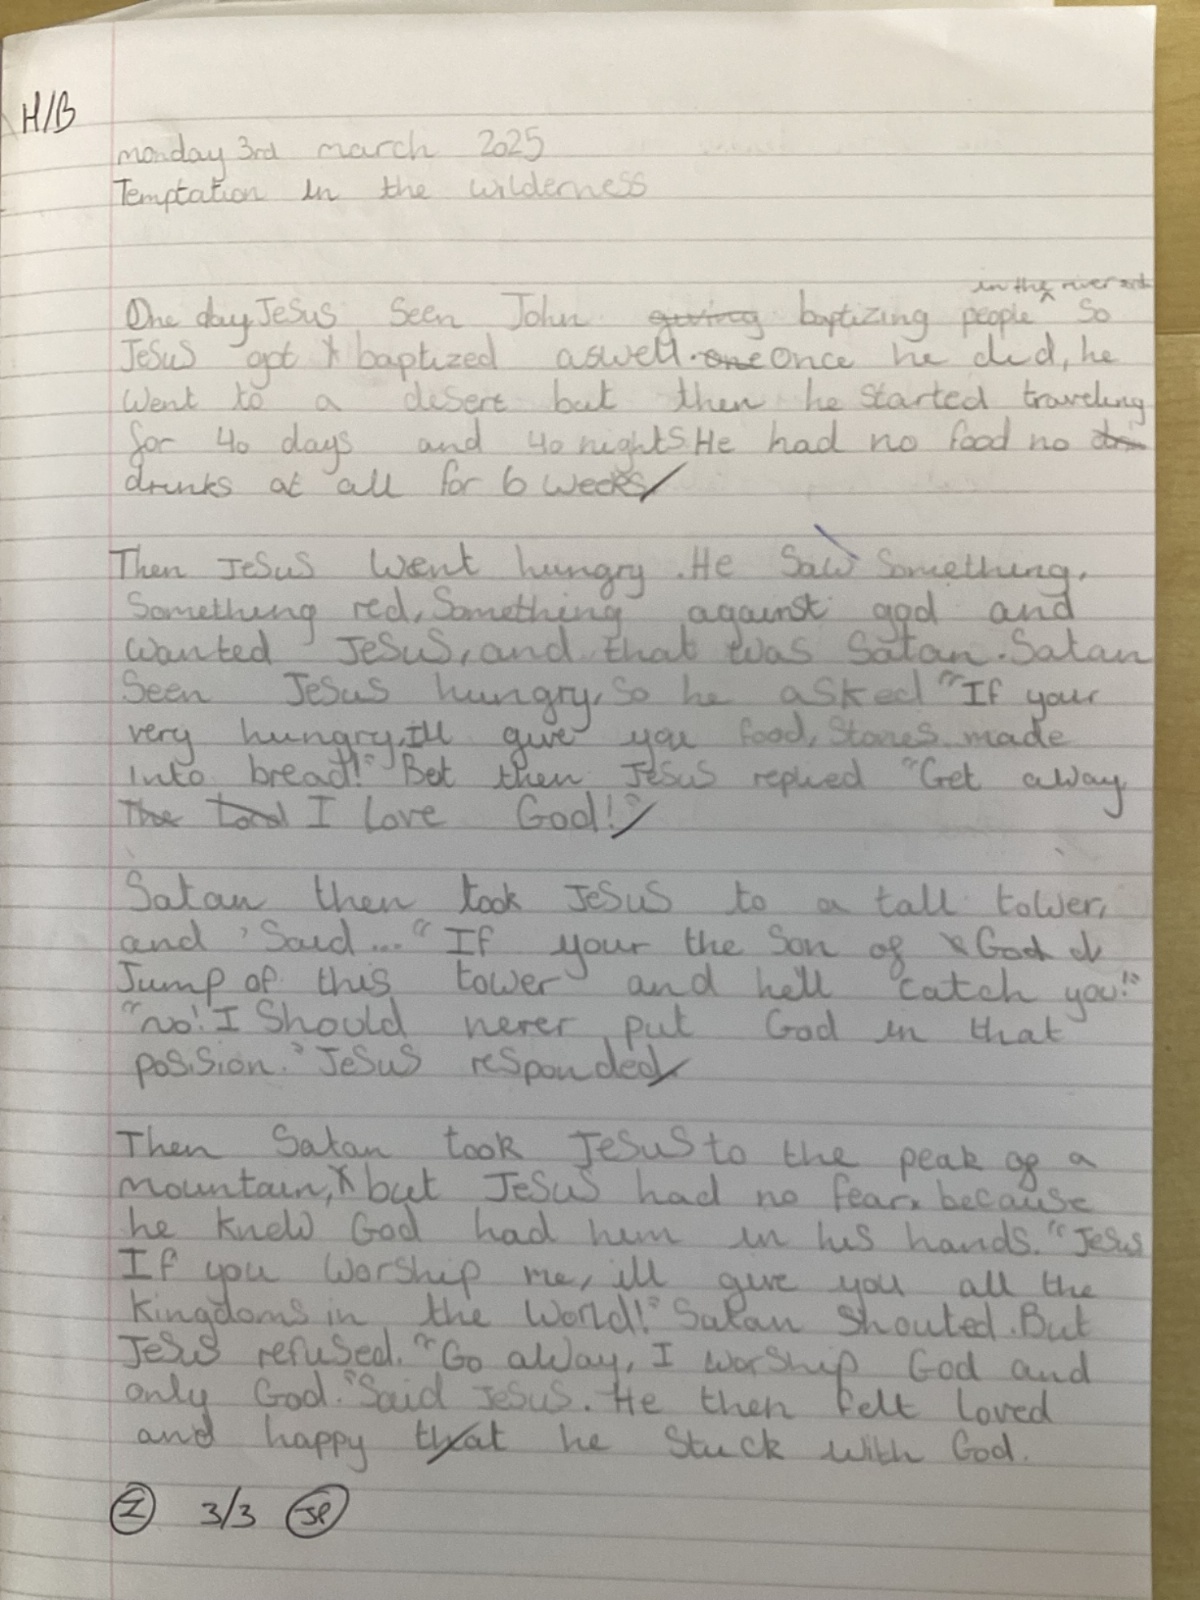 H/B
monday 3rd march 2025
Temptation in the wilderness
in the river
One day Jesus Seen John giving baptizing people So
Jesus got baptized aswell. one Once he did, he
Went to a desert but then he started traveling
for 40 days and 40 nights. He had no food no
drinks at all for 6 weeks
Then Jesus Went hungry. He Saw Something,
Something red, Something against god and
wanted Jesus, and that was Satan. Satan
Seen Jesus hungry, So he asked "If your
very hungry, Ill give you food, Stones made
into bread!" Bet then Jesus replied "Get away
The Lord I Love God!"
Satan then took Jesus to a tall tower,
and Said... "If your the Son of God
Jump of this tower and he'll catch you!"
"no! I Should never put God in that
posision." Jesus responded
Then Satan took Jesus to the peak of a
mountain, but Jesus had no fear, because
he knew God had him in his hands. "Jesus
If you worship me, ill give you all the
kingdoms in the World!" Satan Shouted. But
Jesus refused. "Go away, I worship God and
only God." Said Jesus. He then felt loved
and happy that he Stuck with God.
I 3/3 JP